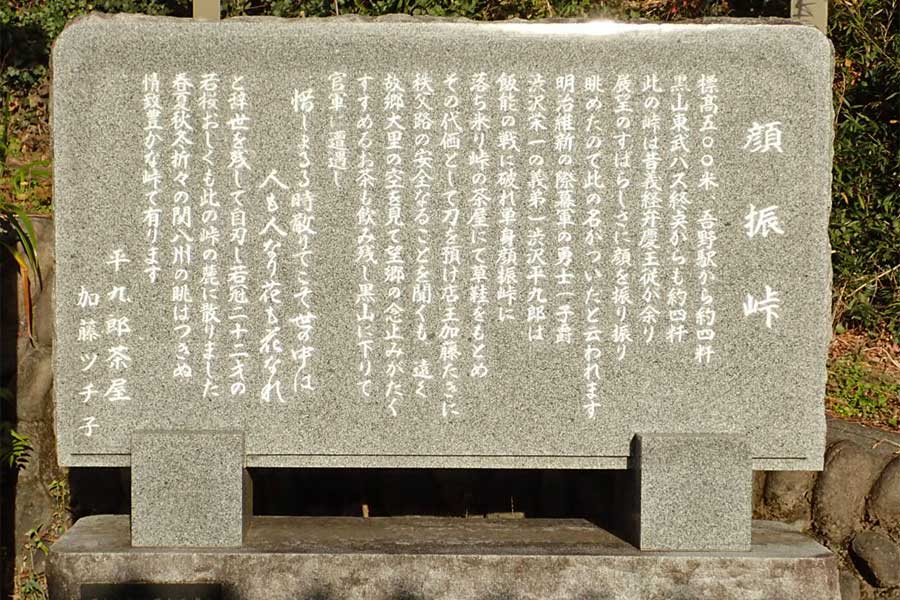 顔振峠
標高五〇〇米 吾野駅から約四粁
黒山東武バス終点からも約四粁
此の峠は昔義経弁慶主従が余り
展望のすばらしさに顔を振り振り
眺めたので此の名がついたと云われます
明治維新の際幕軍の勇士一子爵
渋沢栄一の義弟一渋沢平九郎は
飯能の戦に破れ単身顔振峠に
落ち来り峠の茶屋にて草鞋をもとめ
その代価として刀を預け店主加藤たきに
秩父路の安全なることを聞くも 遠く
故郷大里の空を見て望郷の念止みがたく
すすめるお茶も飲み残し黒山に下りて
官軍に遭遇し
惜しまるる時散りてこそ世の中は
人も人なり花も花なれ
と辞世を残して自刃し若冠二十二才の
若桜おしくも此の峠の麓に散りました
春夏秋冬折々の関八州の眺はつきぬ
情致豊かな峠で有ります
平九郎茶屋
加藤ツチ子